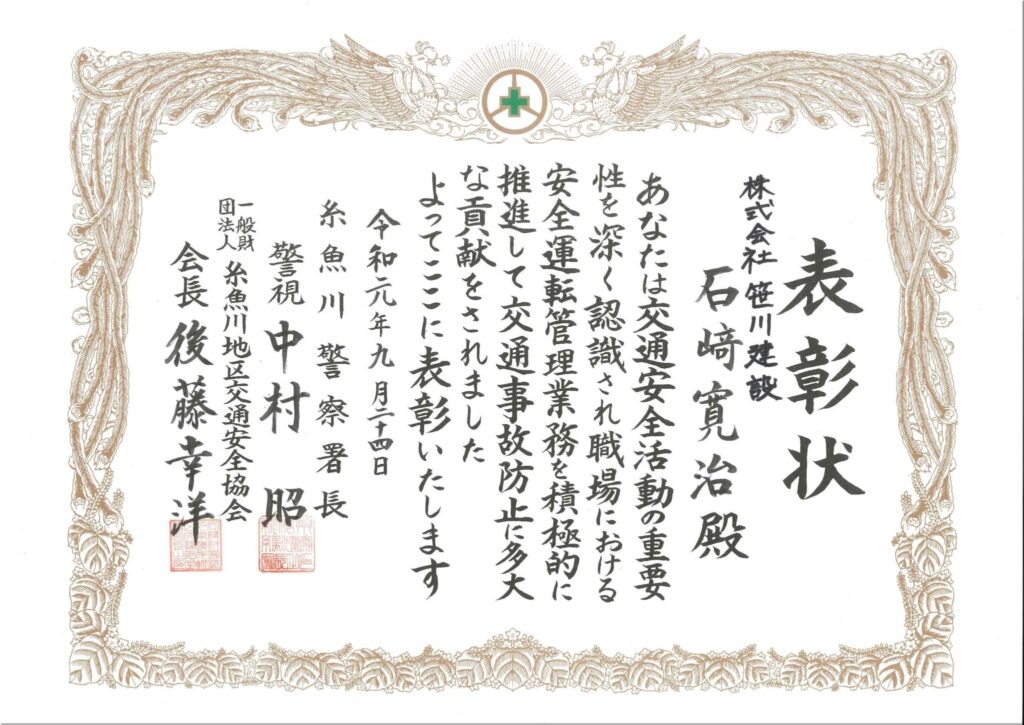 表彰状
株式会社笹川建設
石﨑寛治殿
あなたは交通安全活動の重要
性を深く認識され職場における
安全運転管理業務を積極的に
推進して交通事故防止に多大
な貢献をされました
よってここに表彰いたします
令和元年九月二十四日
糸魚川警察署長
警視 中村 昭
一般財
団法人
糸魚川地区交通安全協会
会長 後藤幸洋